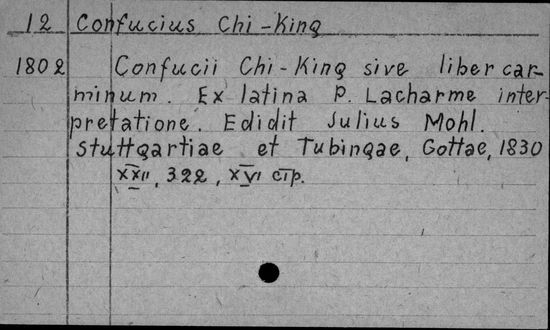 12 Confucius Chi-King
1802 Confucii Chi-King sive liber car-
minum. Ex latina P. Lacharme inter-
pretatione. Edidit Julius Mohl.
Stuttgartiae et Tubingae, Gottae, 1830
XXII, 322, XVI стр.